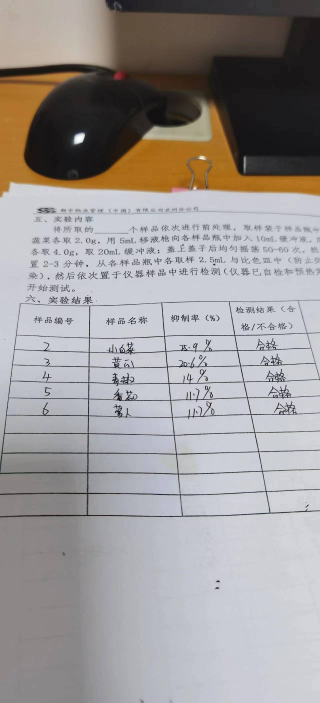 五、实验内容
将所取的____个样品依次进行前处理，取样袋于样品瓶中
蔬果各取 2.0g，用 5mL 移液枪向各样品瓶中加入 10mL 缓冲液，
各取 4.0g，取 20mL 缓冲液；盖上盖子后均匀摇荡 50-60 次，
置 2-3 分钟，从各样品瓶中各取样 2.5mL 与比色皿中（防止
染），然后依次置于仪器样品中进行检测（仪器已自检和预热
开始测试。
六、实验结果：
样品编号 样品名称 抑制率（%） 检测结果（合格/不合格）
2 小白菜 %  合格
3 黄瓜 20.6% 合格
4 14% 合格
5 11.7% 合格
6 11.7% 合格